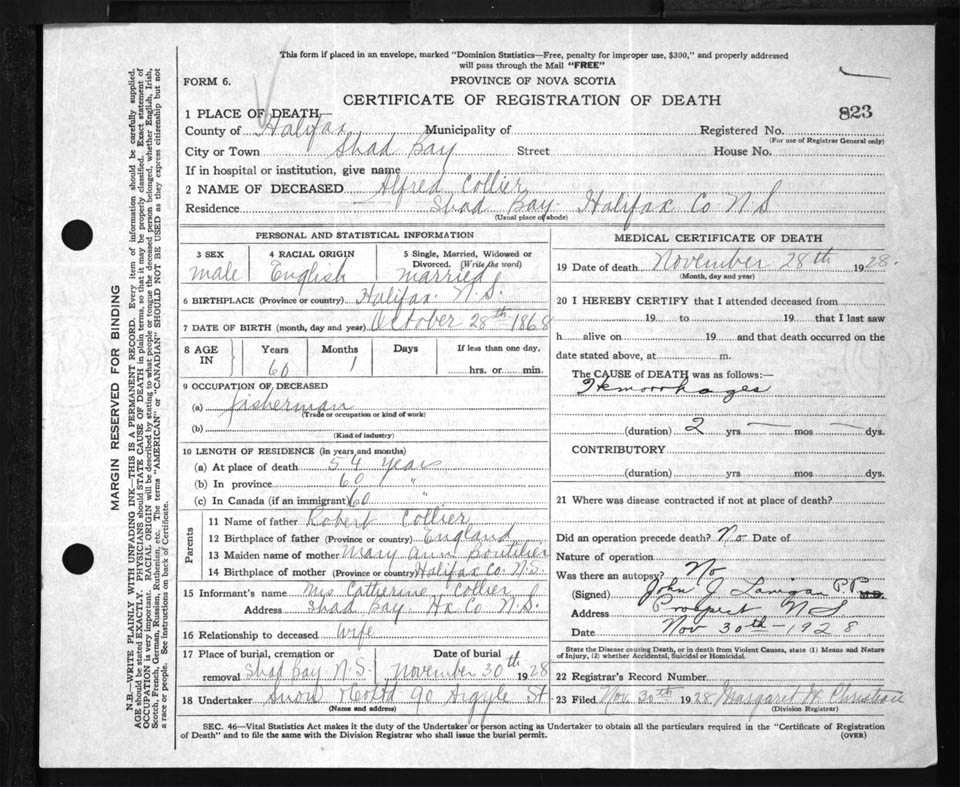 This form if placed in an envelope, marked "Dominion Statistics—Free, penalty for improper use, $300," and properly addressed
will pass through the Mail "FREE"
FORM 6.
PROVINCE OF NOVA SCOTIA
CERTIFICATE OF REGISTRATION OF DEATH
823
1 PLACE OF DEATH,—
County of Halifax Municipality of Registered No.
(For use of Registrar General only)
City or Town Shad Bay Street House No.
If in hospital or institution, give name
2 NAME OF DECEASED Alfred Collier
Residence Shad Bay Halifax Co N S
(Usual place of abode)
PERSONAL AND STATISTICAL INFORMATION
3 SEX 4 RACIAL ORIGIN 5 Single, Married, Widowed or
Divorced. (Write the word)
male English married
6 BIRTHPLACE (Province or country) Halifax N.S.
7 DATE OF BIRTH (month, day and year) October 28th 1868
8 AGE IN Years Months Days If less than one day,
60 1 hrs. or min.
9 OCCUPATION OF DECEASED
(a) fisherman
(Trade or occupation or kind of work)
(b)
(Kind of industry)
10 LENGTH OF RESIDENCE (in years and months)
(a) At place of death 54 years
(b) In province 60 "
(c) In Canada (if an immigrant) 60 "
Parents
11 Name of father Robert Collier
12 Birthplace of father (Province or country) England
13 Maiden name of mother Mary Ann Boutilier
14 Birthplace of mother (Province or country) Halifax Co. N.S.
15 Informant's name Mrs Catherine Collier
Address Shad Bay Hx Co N.S.
16 Relationship to deceased wife
17 Place of burial, cremation or Date of burial
removal Shad Bay N.S. November 30th 1928
18 Undertaker Snow & Co Ltd 90 Argyle St
(Name and address)
MEDICAL CERTIFICATE OF DEATH
19 Date of death November 28th 1928.
(Month, day and year)
20 I HEREBY CERTIFY that I attended deceased from
19 to 19 that I last saw
h alive on 19 and that death occurred on the
date stated above, at m.
The CAUSE of DEATH was as follows:—
Hemorrhages
(duration) 2 yrs — mos — dys.
CONTRIBUTORY
(duration) yrs mos dys.
21 Where was disease contracted if not at place of death?
Did an operation precede death? No Date of
Nature of operation
Was there an autopsy? No
(Signed) John J Lanigan P.P. M.D.
Address Prospect N S
Date Nov 30th - 1928
State the Disease causing Death, or in death from Violent Causes, state (1) Means and Nature
of Injury, (2) whether Accidental, Suicidal or Homicidal.
22 Registrar's Record Number
23 Filed Nov 30th 1928 Margaret Christian
(Division Registrar)
SEC. 46—Vital Statistics Act makes it the duty of the Undertaker or person acting as Undertaker to obtain all the particulars required in the "Certificate of Registration
of Death" and to file the same with the Division Registrar who shall issue the burial permit.
(OVER)
MARGIN RESERVED FOR BINDING
N.B.—WRITE PLAINLY WITH UNFADING INK—THIS IS A PERMANENT RECORD. Every item of information should be carefully supplied.
AGE should be stated EXACTLY. PHYSICIANS should STATE CAUSE OF DEATH in plain terms, so that it may be properly classified. Exact statement of
OCCUPATION is very important. RACIAL ORIGIN will be described by stating to what people or tongue the deceased person belonged, whether English, Irish,
Scotch, French, German, Russian, Ruthenian, etc. The terms "AMERICAN" or "CANADIAN" SHOULD NOT BE USED as they express citizenship but not
a race or people. See instructions on back of Certificate.